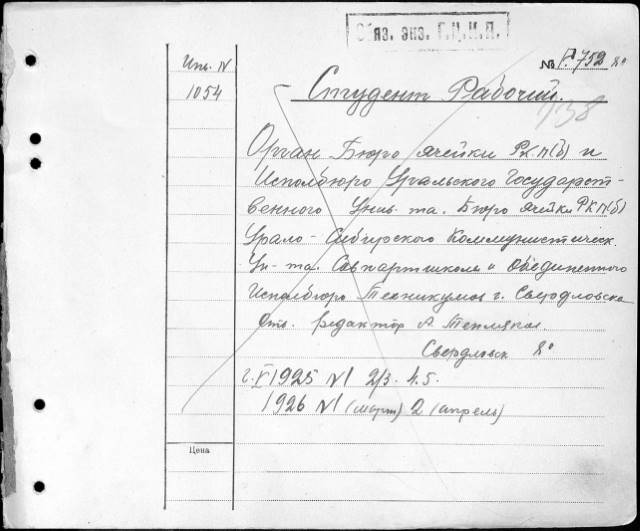 Обяз. экз. Г.Ц.К.П.
№ Г.752 8°
Инв. IV
1054
Студент Рабочий.
1738
Орган Бюро ячейки РКП(б) и
Исполбюро Уральского Государст-
венного Унив-та. Бюро ячейки РКП(б)
Урало-Сибирского Коммунистическ.
Ун-та. Совпартшколы и Объединенного
Исполбюро Техникумов г. Свердловска
Отв. редактор А. Тепляков.
Свердловск 8°
г. V 1925 N1 2/3. 4. 5.
1926 N1 (март) 2 (апрель)
Цена